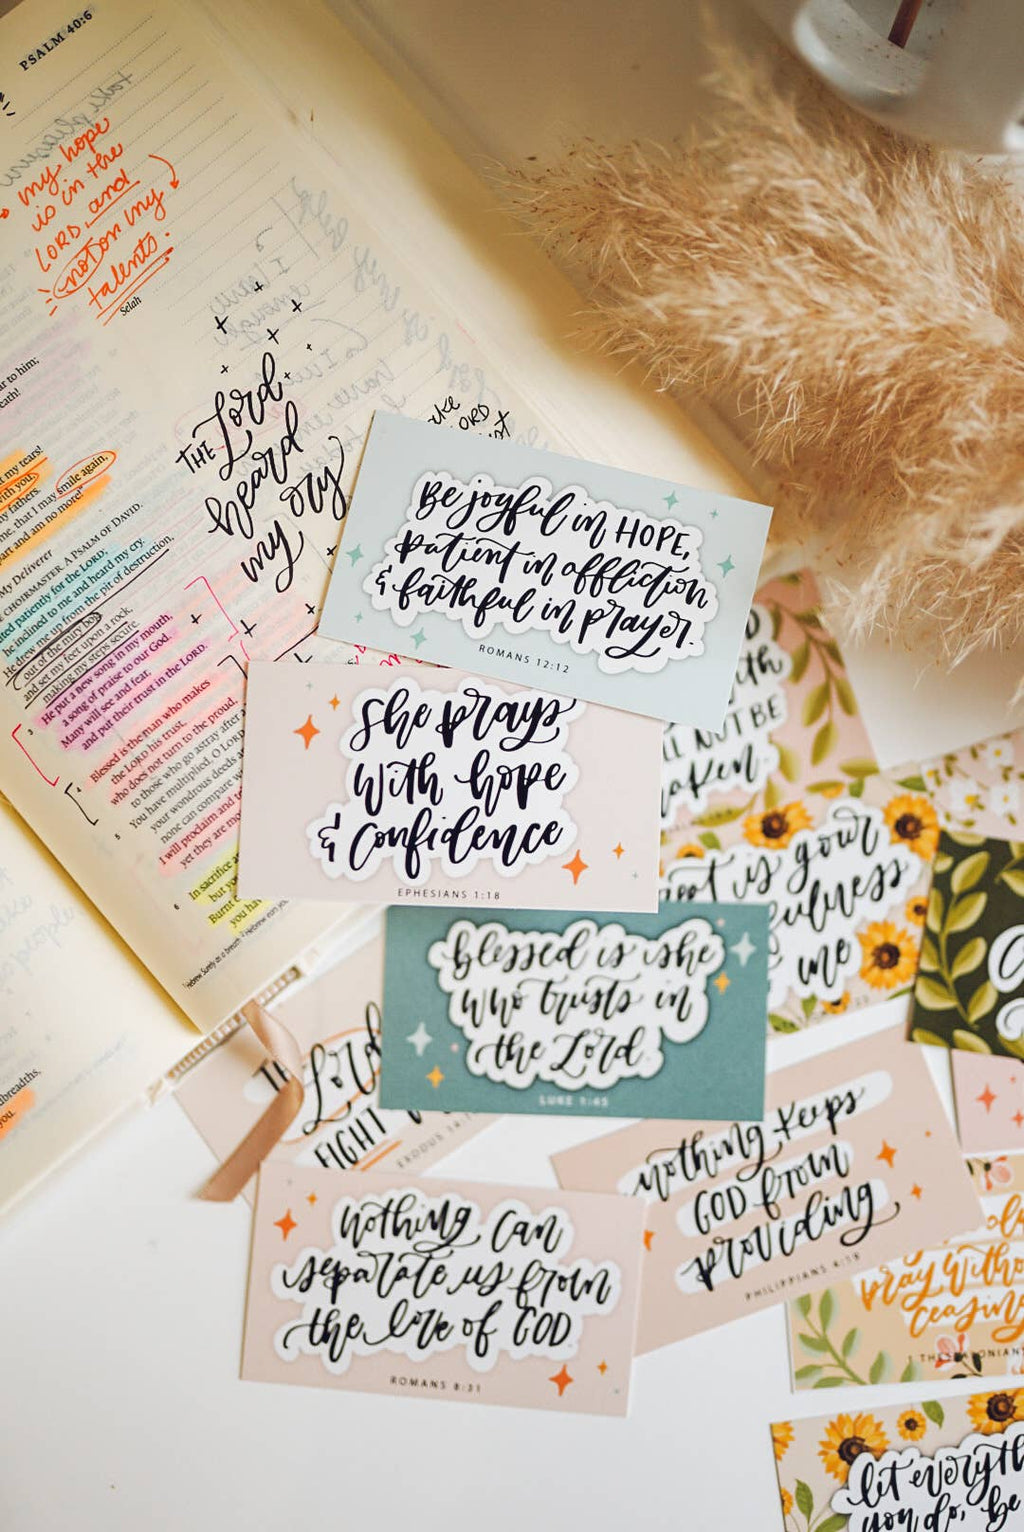 PSALM 40:6
my hope
is in the
LORD and
not on my
talents.
Selah
THE Lord
heard
my cry
the
LORD
ar to him;
eath!
t my tears!
with you,
my fathers.
me, that I may smile again,
part and am no more!"
My Deliverer
CHOIRMASTER. A PSALM OF DAVID.
ited patiently for the LORD;
he inclined to me and heard my cry.
He drew me up from the pit of destruction,
out of the miry bog,
and set my feet upon a rock,
making my steps secure.
3 He put a new song in my mouth,
a song of praise to our God.
Many will see and fear,
and put their trust in the LORD.
4 Blessed is the man who makes
the LORD his trust,
who does not turn to the proud,
to those who go astray after a
5 You have multiplied, O LORD
your wondrous deeds a
none can compare w
I will proclaim and t
yet they are mo
6 In sacrifice a
but yo
Burnt
you ha
dbreadths,
you.
Be joyful in HOPE,
patient in affliction
& faithful in prayer.
ROMANS 12:12
She prays
with hope
& confidence
EPHESIANS 1:18
blessed is she
who trusts in
the Lord.
LUKE 1:45
LL NOT BE
aken.
is your
fulness
me
Lord
FIGHT
EXODUS 14:1
nothing keeps
GOD from
providing
PHILIPPIANS 4:19
nothing can
separate us from
the love of GOD
ROMANS 8:31
pray witho
ceasing
1 THESSALONIANS
let everyth
you do, be